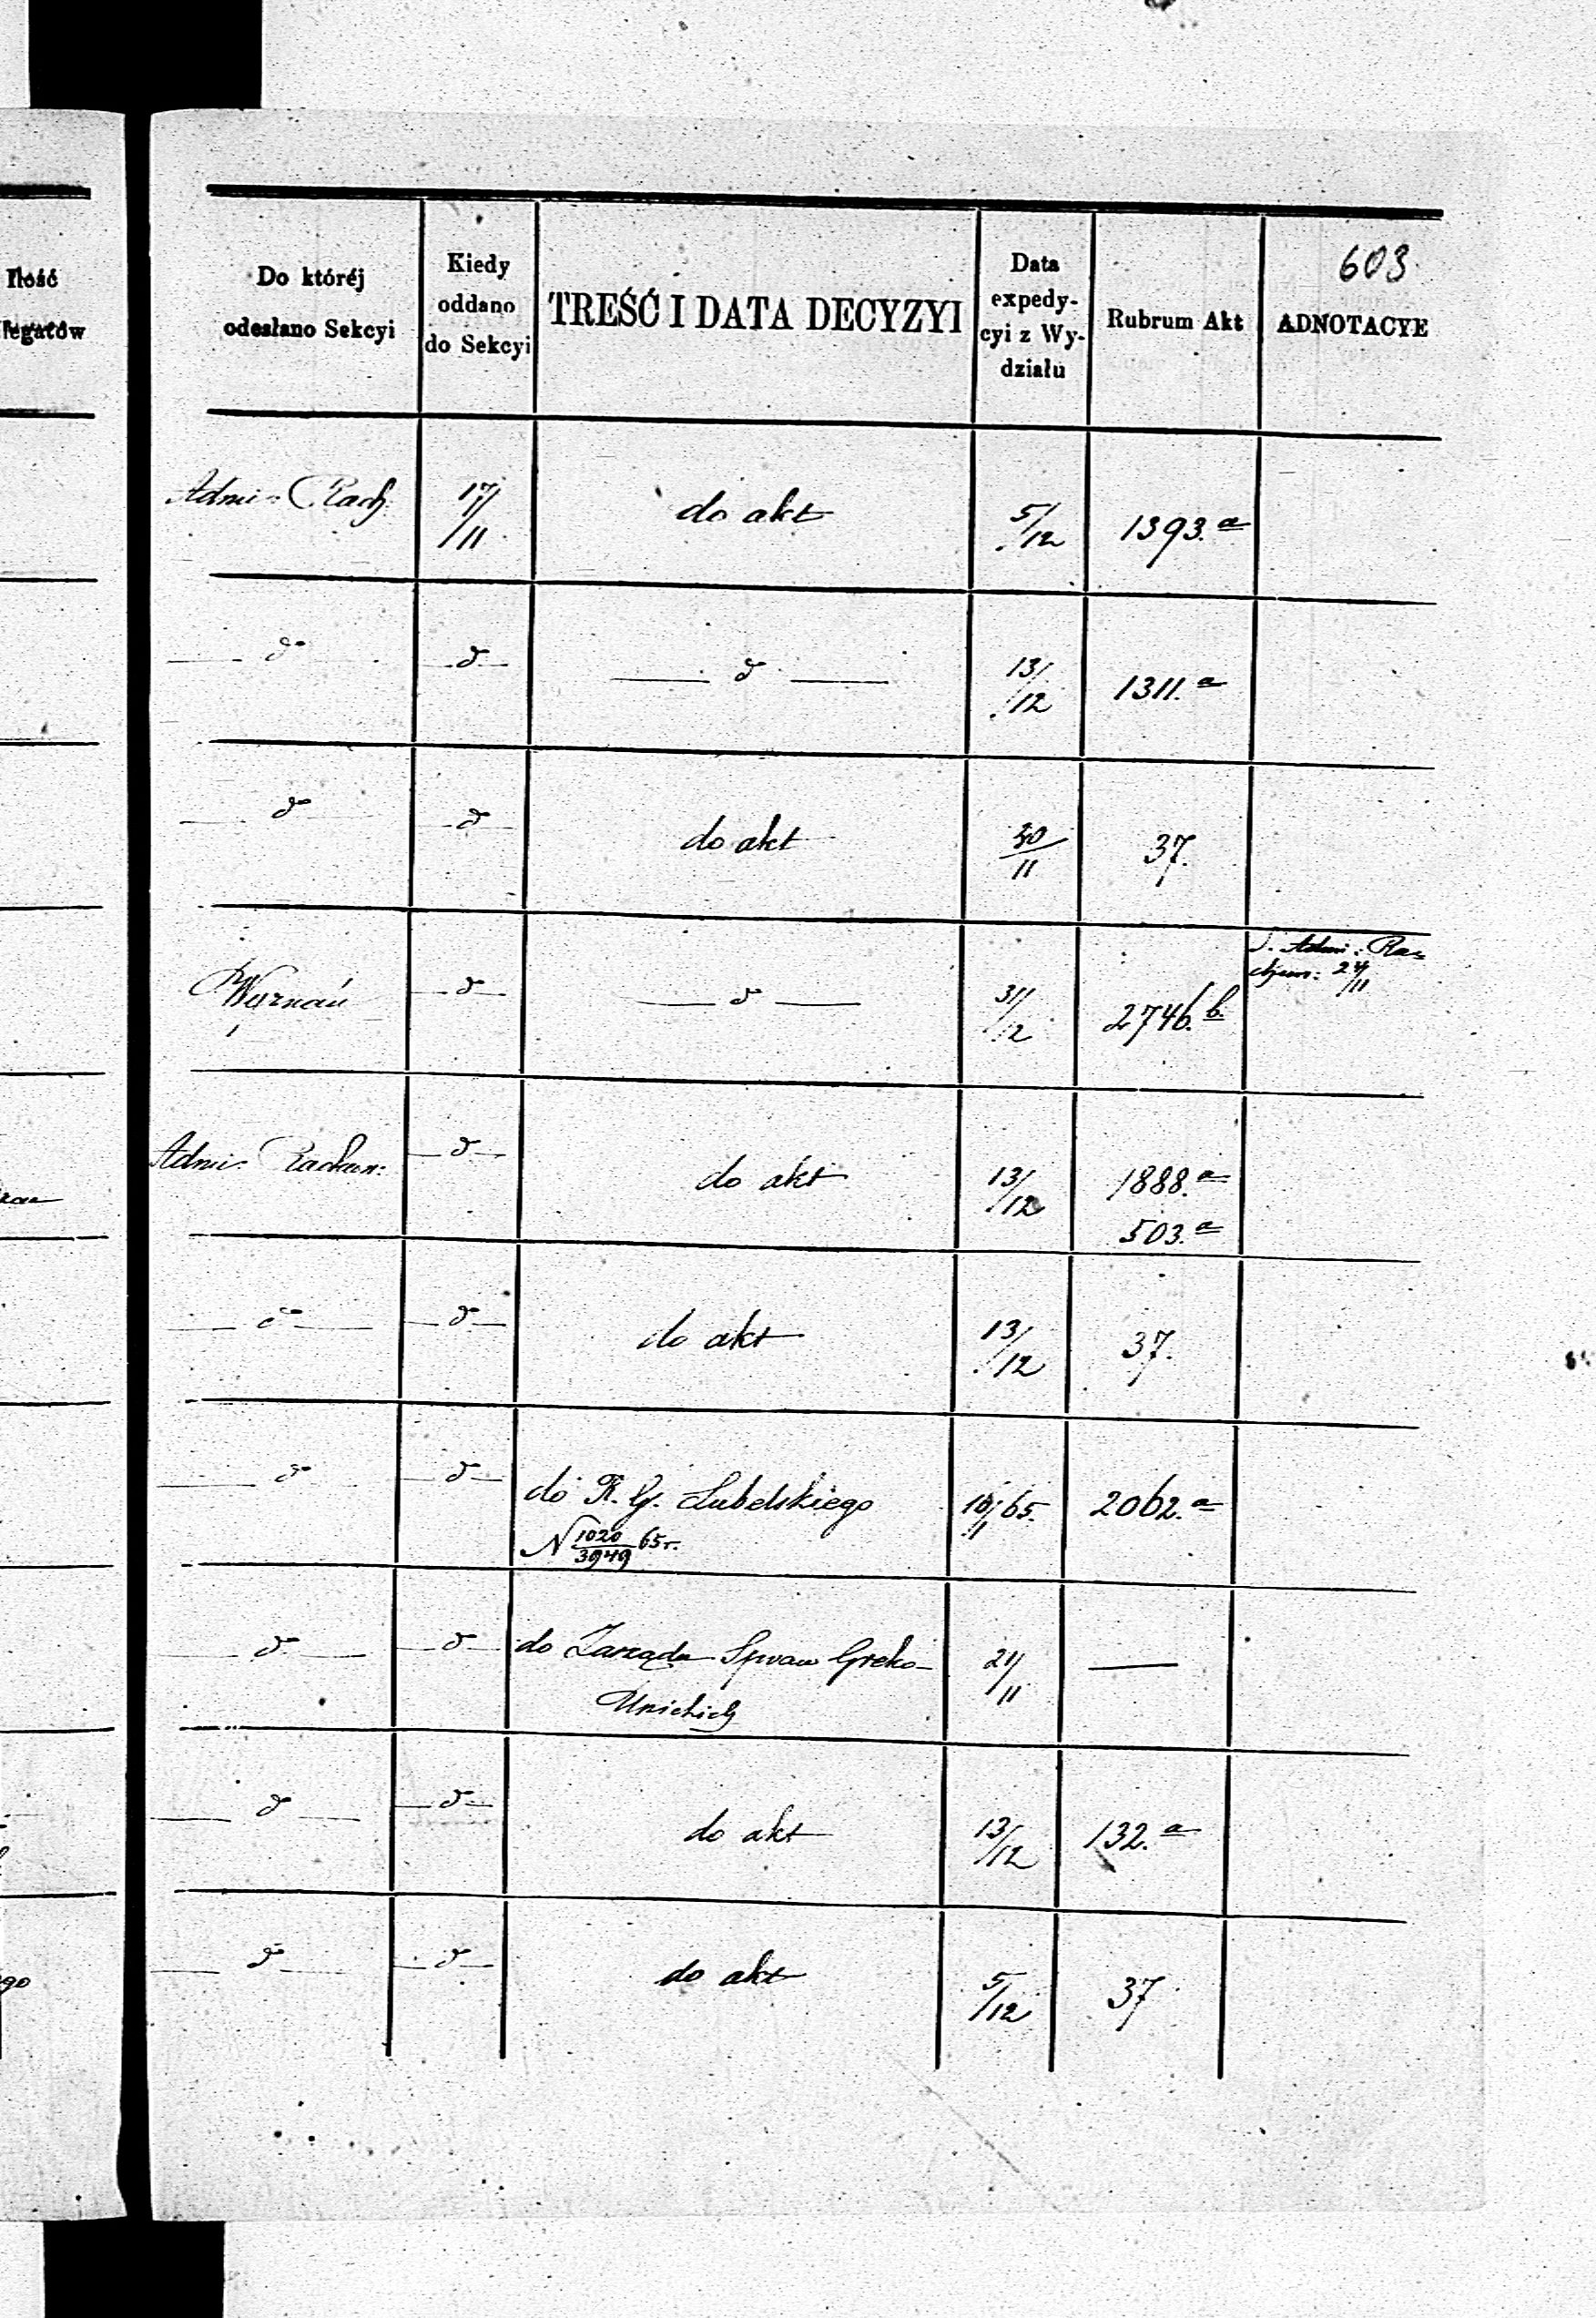 603
Ilość
legatów
Do któréj
odesłano Sekcyi
Kiedy
oddano
do Sekcyi
TREŚĆ I DATA DECYZYI
Data
expedy-
cyi z Wy-
działu
Rubrum Akt
ADNOTACYE
Admi: Rach 17/11 do akt 5/12 1393.a
do do do 13/12 1311.a
do do do akt 30/11 37.
Wyznań do do 31/12 2746.b. S. Admi: Ra=
chun: 24/11
Admi: Rachun: do do akt 13/12 1888.a
503.a
do do do akt 13/12 37.
do do do R. G. Lubelskiego 65. 2062.a
N 1020/3949 65 r.
do do do Zarządu Spraw Greko-
Unickich 21/11 —
do do do akt 13/12 132.a
do do do akt 5/12 37
go